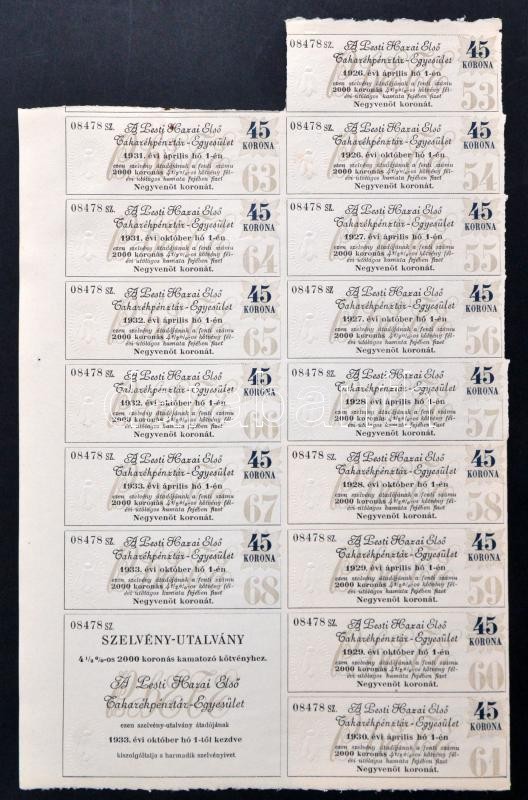 08478 SZ.
A Pesti Hazai Első
Takarékpénztár-Egyesület
1926. évi április hó 1-én
ezen szelvény átadójának a fenti számu
2000 koronás 4½%-os kötvény fél-
évi utólagos kamata fejében fizet
Negyvenöt koronát.
45
KORONA
53
08478 SZ.
A Pesti Hazai Első
Takarékpénztár-Egyesület
1931. évi április hó 1-én
ezen szelvény átadójának a fenti számu
2000 koronás 4½%-os kötvény fél-
évi utólagos kamata fejében fizet
Negyvenöt koronát.
45
KORONA
63
08478 SZ.
A Pesti Hazai Első
Takarékpénztár-Egyesület
1926. évi október hó 1-én
ezen szelvény átadójának a fenti számu
2000 koronás 4½%-os kötvény fél-
évi utólagos kamata fejében fizet
Negyvenöt koronát.
45
KORONA
54
08478 SZ.
A Pesti Hazai Első
Takarékpénztár-Egyesület
1931. évi október hó 1-én
ezen szelvény átadójának a fenti számu
2000 koronás 4½%-os kötvény fél-
évi utólagos kamata fejében fizet
Negyvenöt koronát.
45
KORONA
64
08478 SZ.
A Pesti Hazai Első
Takarékpénztár-Egyesület
1927. évi április hó 1-én
ezen szelvény átadójának a fenti számu
2000 koronás 4½%-os kötvény fél-
évi utólagos kamata fejében fizet
Negyvenöt koronát.
45
KORONA
55
08478 SZ.
A Pesti Hazai Első
Takarékpénztár-Egyesület
1932. évi április hó 1-én
ezen szelvény átadójának a fenti számu
2000 koronás 4½%-os kötvény fél-
évi utólagos kamata fejében fizet
Negyvenöt koronát.
45
KORONA
65
08478 SZ.
A Pesti Hazai Első
Takarékpénztár-Egyesület
1927. évi október hó 1-én
ezen szelvény átadójának a fenti számu
2000 koronás 4½%-os kötvény fél-
évi utólagos kamata fejében fizet
Negyvenöt koronát.
45
KORONA
56
08478 SZ.
A Pesti Hazai Első
Takarékpénztár-Egyesület
1932. évi október hó 1-én
ezen szelvény átadójának a fenti számu
2000 koronás 4½%-os kötvény fél-
évi utólagos kamata fejében fizet
Negyvenöt koronát.
45
KORONA
66
08478 SZ.
A Pesti Hazai Első
Takarékpénztár-Egyesület
1928. évi április hó 1-én
ezen szelvény átadójának a fenti számu
2000 koronás 4½%-os kötvény fél-
évi utólagos kamata fejében fizet
Negyvenöt koronát.
45
KORONA
57
08478 SZ.
A Pesti Hazai Első
Takarékpénztár-Egyesület
1933. évi április hó 1-én
ezen szelvény átadójának a fenti számu
2000 koronás 4½%-os kötvény fél-
évi utólagos kamata fejében fizet
Negyvenöt koronát.
45
KORONA
67
08478 SZ.
A Pesti Hazai Első
Takarékpénztár-Egyesület
1928. évi október hó 1-én
ezen szelvény átadójának a fenti számu
2000 koronás 4½%-os kötvény fél-
évi utólagos kamata fejében fizet
Negyvenöt koronát.
45
KORONA
58
08478 SZ.
A Pesti Hazai Első
Takarékpénztár-Egyesület
1933. évi október hó 1-én
ezen szelvény átadójának a fenti számu
2000 koronás 4½%-os kötvény fél-
évi utólagos kamata fejében fizet
Negyvenöt koronát.
45
KORONA
68
08478 SZ.
A Pesti Hazai Első
Takarékpénztár-Egyesület
1929. évi április hó 1-én
ezen szelvény átadójának a fenti számu
2000 koronás 4½%-os kötvény fél-
évi utólagos kamata fejében fizet
Negyvenöt koronát.
45
KORONA
59
08478 SZ.
SZELVÉNY-UTALVÁNY
4½%-os 2000 koronás kamatozó kötvényhez.
A Pesti Hazai Első
Takarékpénztár-Egyesület
ezen szelvény-utalvány átadójának
1933. évi október hó 1-től kezdve
kiszolgáltatja a harmadik szelvényivet
08478 SZ.
A Pesti Hazai Első
Takarékpénztár-Egyesület
1929. évi október hó 1-én
ezen szelvény átadójának a fenti számu
2000 koronás 4½%-os kötvény fél-
évi utólagos kamata fejében fizet
Negyvenöt koronát.
45
KORONA
60
08478 SZ.
A Pesti Hazai Első
Takarékpénztár-Egyesület
1930. évi április hó 1-én
ezen szelvény átadójának a fenti számu
2000 koronás 4½%-os kötvény fél-
évi utólagos kamata fejében fizet
Negyvenöt koronát.
45
KORONA
61